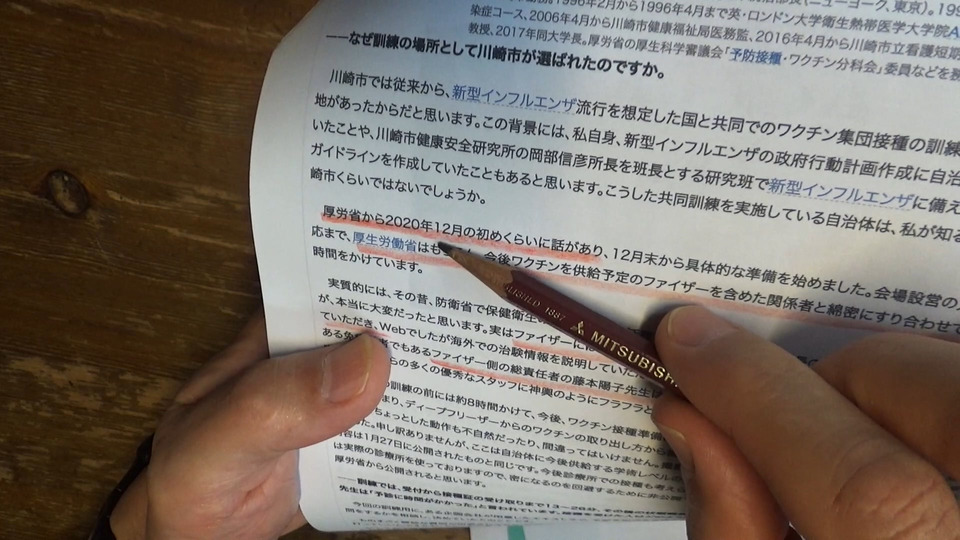 1996年2月から1996年4月まで英・ロンドン大学衛生熱帯医学大学院
染症コース、2006年4月から川崎市健康福祉局医務監、2016年4月から川崎市立看護短期
教授、2017年同大学長。厚労省の厚生科学審議会「予防接種・ワクチン分科会」委員などを務
――なぜ訓練の場所として川崎市が選ばれたのですか。
川崎市では従来から、新型インフルエンザ流行を想定した国と共同でのワクチン集団接種の訓練
地があったからだと思います。この背景には、私自身、新型インフルエンザの政府行動計画作成に自治
いたことや、川崎市健康安全研究所の岡部信彦所長を班長とする研究班で新型インフルエンザに備え
ガイドラインを作成していたこともあると思います。こうした共同訓練を実施している自治体は、私が知る
崎市くらいではないでしょうか。
厚労省から2020年12月の初めくらいに話があり、12月末から具体的な準備を始めました。会場設営の
応まで、厚生労働省はも 今後ワクチンを供給予定のファイザーを含めた関係者と綿密にすり合わせて
時間をかけています。
実質的には、その昔、防衛省で保健衛生
が、本当に大変だったと思います。実はファイザーには
ていただき、Webでしたが海外での治験情報を説明していた
ある でもあるファイザー側の総責任者の藤本陽子先生
らの多くの優秀なスタッフに神輿のようにフラフラと
訓練の前には約8時間かけて、今後、ワクチン接種準備
まり、ディープフリーザーからのワクチンの取り出し方から
ちょっとした動作も不自然だったり、間違ってはいけません。
た。申し訳ありませんが、ここは自治体に今後供給する学術レベルの
内容は1月27日に公開されたものと同じです。今後診療所での接種も考え
は実際の診療所を使っておりますので、密になるのを回避するために非公
厚労省から公開されると思います。
――訓練では、受付から接種証の受け取りまで13～20分、その
先生は「予診に時間がかかった」と言われています
MITSUBISH
1887